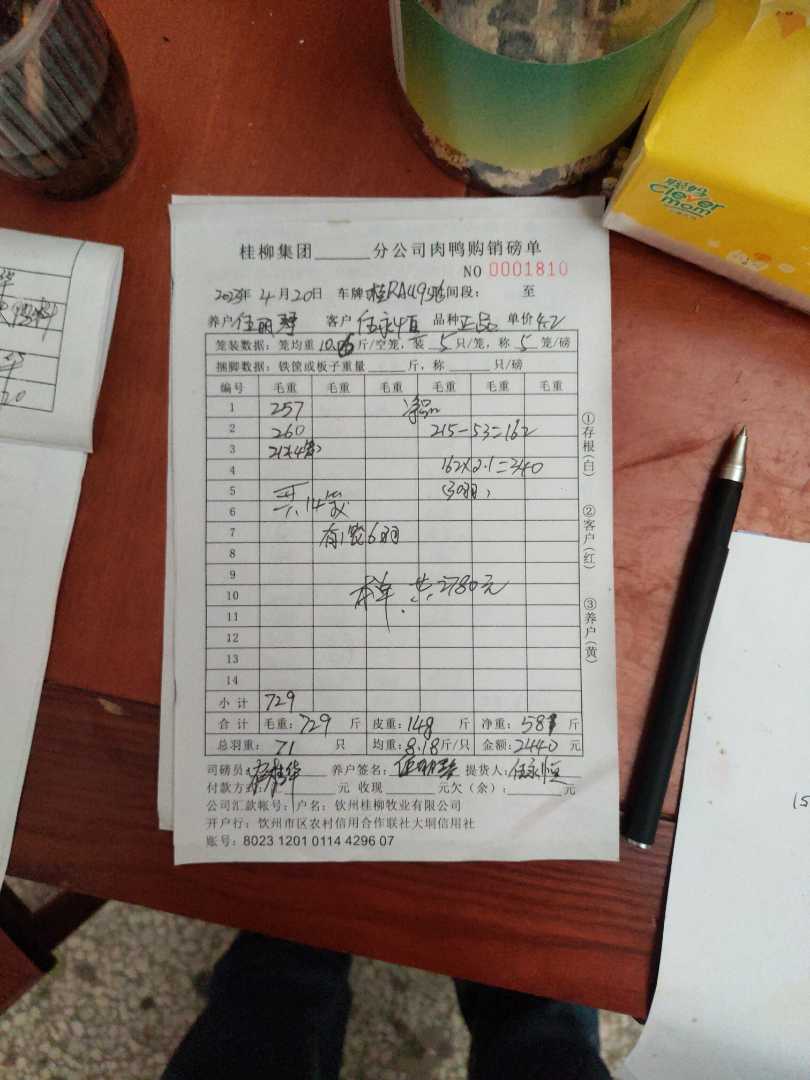 桂柳集团______分公司肉鸭购销磅单
NO 0001810
2023年4月20日 车牌 桂RA49 时间段: 至
养户 任丽 客户 任永恒 品种 正品 单价 4.2
笼装数据: 笼均重 10.6 斤/空笼, 装 5 只/笼, 称 5 笼/磅
捆脚数据: 铁筐或板子重量______斤, 称______只/磅
编号 毛重 毛重 毛重 毛重 毛重 毛重
1 257
2 260 215-53=162
3 212(4笼)
4 162×2.1=340
5 (30羽)
6 共14笼
7 有1笼6羽
8
9
10 本单, 共2780元
11
12
13
14
小计 729
合计 毛重: 729 斤 皮重: 148 斤 净重: 581 斤
总羽重: 71 只 均重: 8.18 斤/只 金额: 2440 元
司磅员: 养户签名: 提货人: 任永恒
付款方式: 元 收现______元欠(余):______元
公司汇款帐号: 户名: 钦州桂柳牧业有限公司
开户行: 钦州市区农村信用合作联社大垌信用社
账号: 8023 1201 0114 4296 07
①存根(白)
②客户(红)
③养户(黄)
Clever
mom